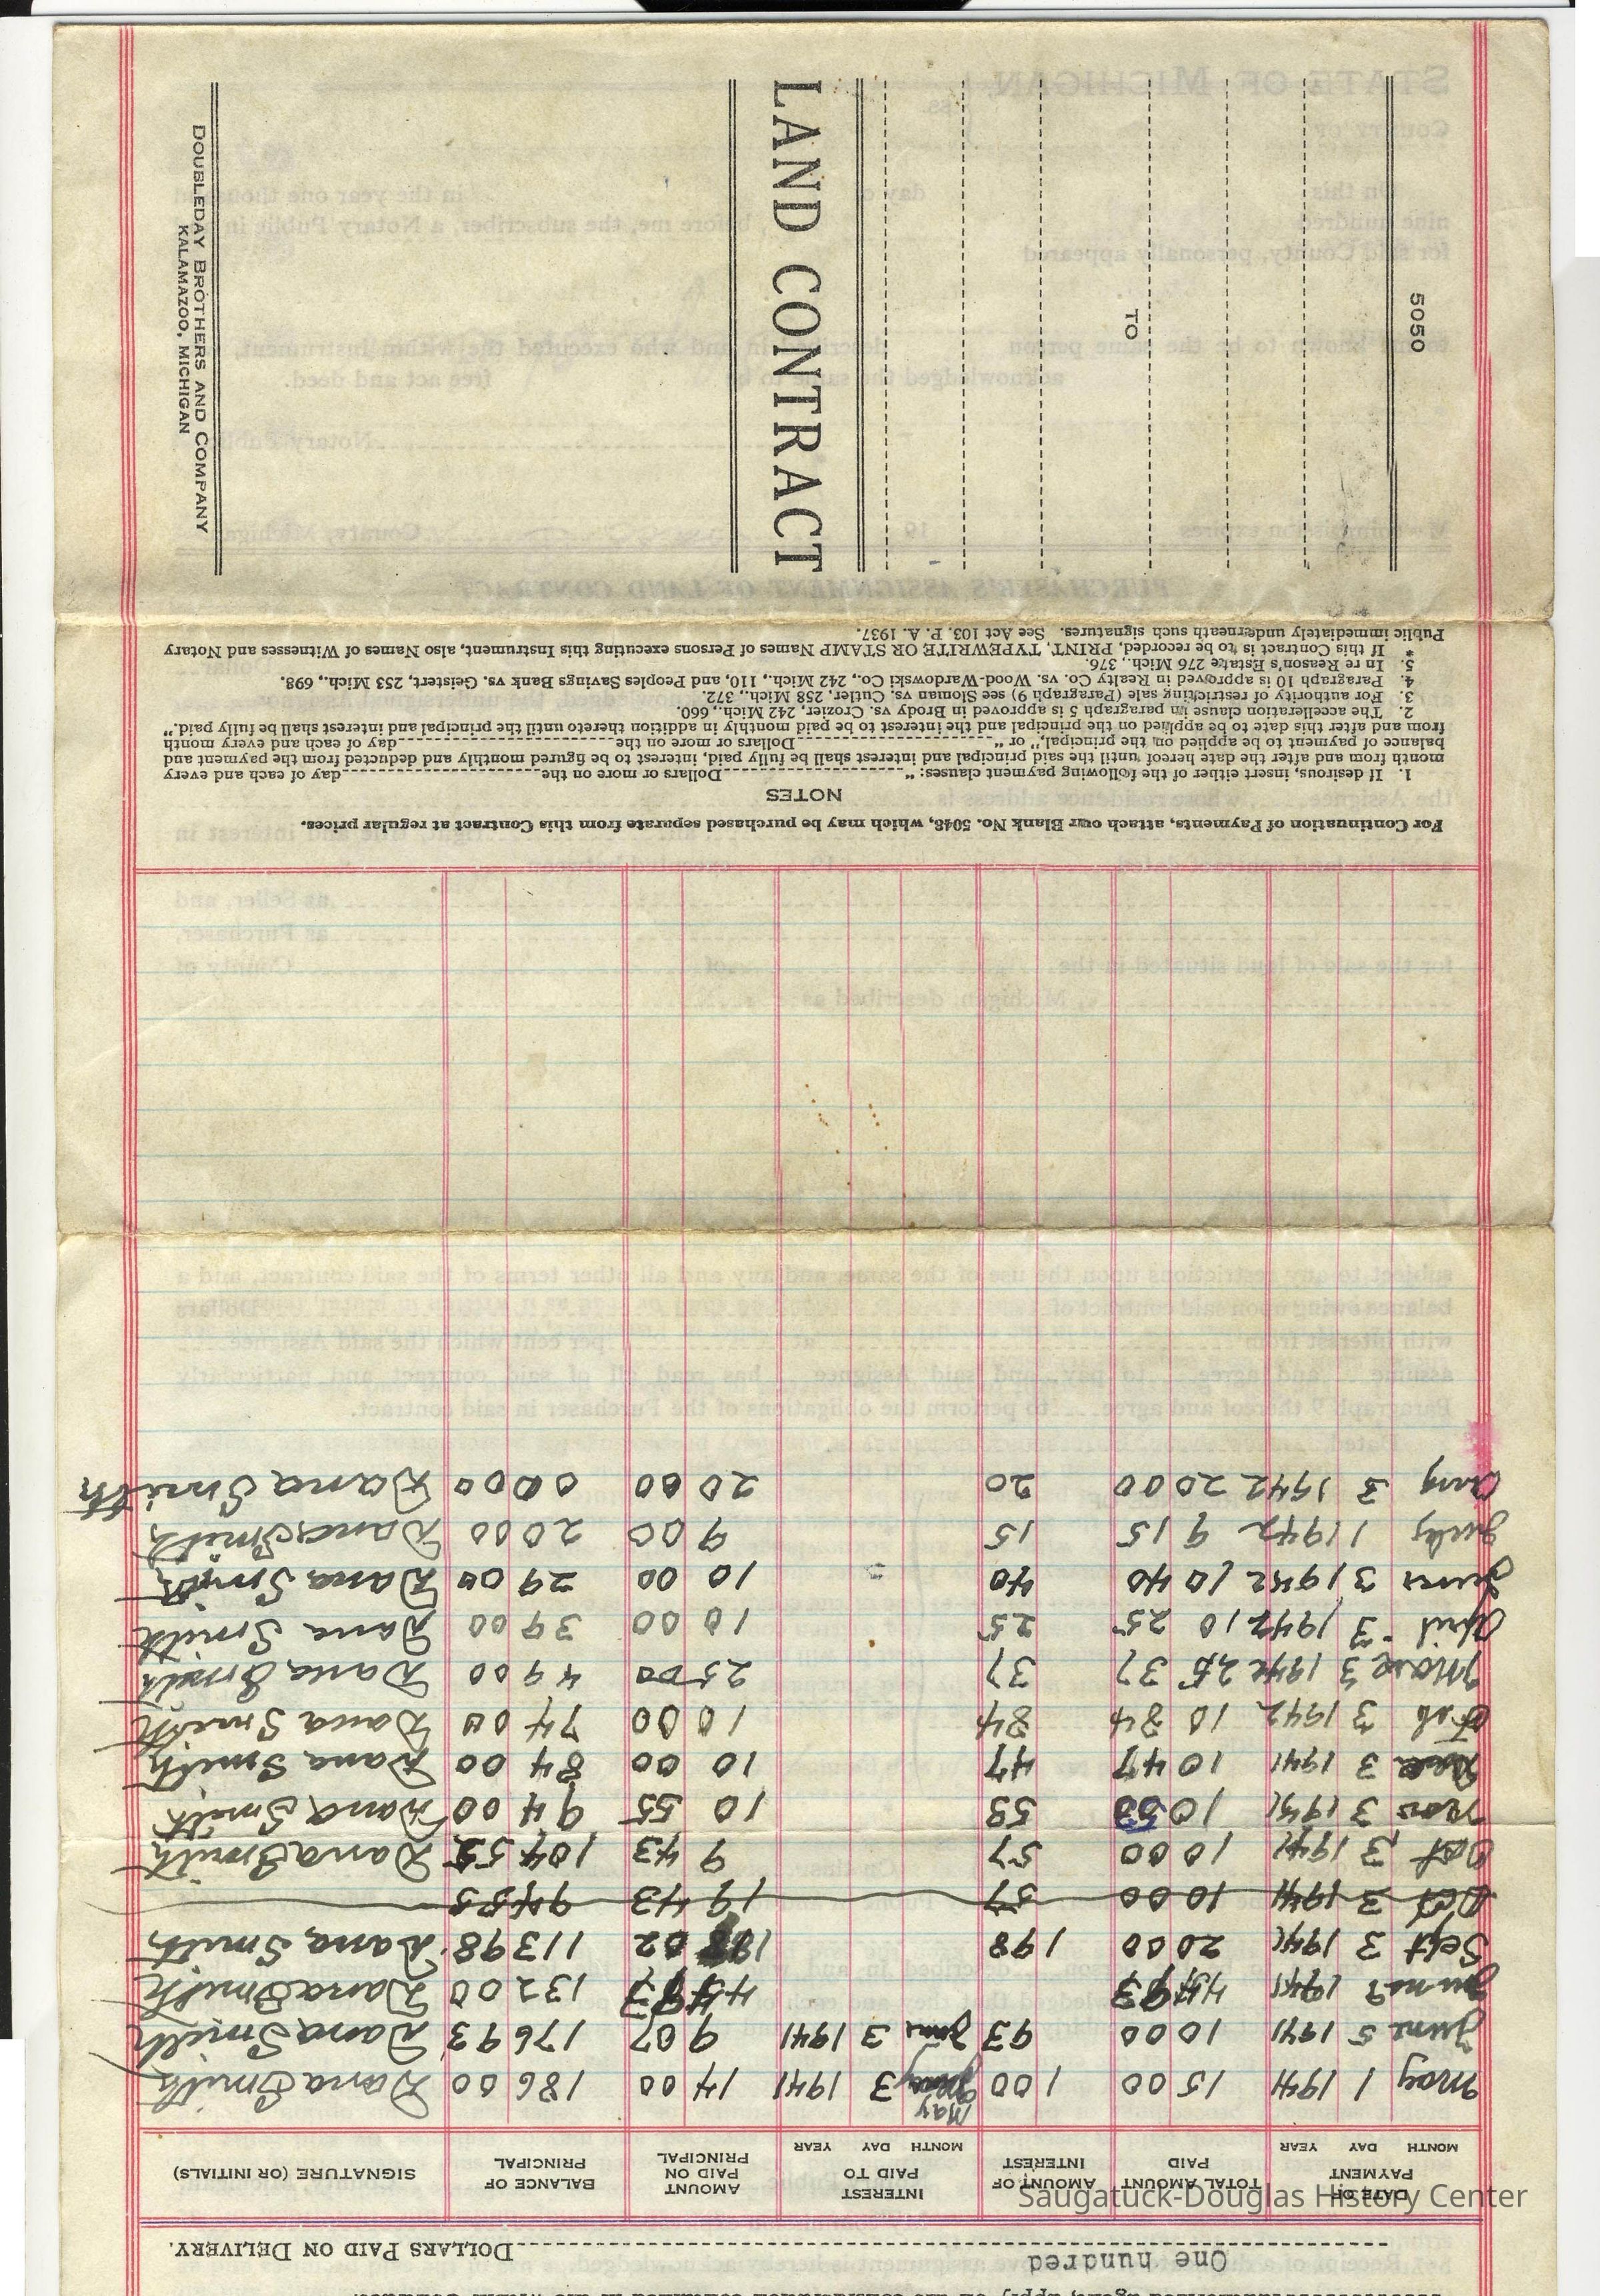 One hundred
DOLLARS PAID ON DELIVERY.
DATE OF PAYMENT TOTAL AMOUNT PAID AMOUNT OF INTEREST INTEREST PAID TO AMOUNT PAID ON PRINCIPAL BALANCE OF PRINCIPAL SIGNATURE (OR INITIALS)
MONTH DAY YEAR MONTH DAY YEAR
May 1 1941 15 00 1 00 May 3 1941 14 00 186 00 Dana Smith
June 5 1941 10 00 93 June 3 1941 9 07 176 93 Dana Smith
1941 132 00 Dana Smith
Sept 3 1941 20 00 1 98 02 113 98 Dana Smith
Oct 3 1941 10 00 57 19 43
Oct 3 1941 10 00 57 9 43 104 55 Dana Smith
Nov 3 1941 10 53 53 10 55 94 00 Dana Smith
3 1941 10 47 47 10 00 84 00 Dana Smith
Feb 3 1942 10 84 84 10 00 74 00 Dana Smith
3 1942 25 37 37 25 00 49 00 Dana Smith
April 3 1942 10 25 25 10 00 39 00 Dana Smith
June 3 1942 10 40 40 10 00 29 00 Dana Smith
July 1 1942 9 15 15 9 00 20 00 Dana Smith
Aug 3 1942 20 00 20 20 00 0 00 Dana Smith
For Continuation of Payments, attach our Blank No. 5048, which may be purchased separate from this Contract at regular prices.
NOTES
1. If desirous, insert either of the following payment clauses: "Dollars or more on the day of each and every
month from and after the date hereof until the said principal and interest shall be fully paid, interest to be figured monthly and deducted from the payment and
balance of payment to be applied on the principal," or "Dollars or more on the day of each and every month
from and after this date to be applied on the principal and the interest to be paid monthly in addition thereto until the principal and interest shall be fully paid."
2. The accelleration clause in paragraph 5 is approved in Brody vs. Crozier, 242 Mich., 660.
3. For authority of restricting sale (Paragraph 9) see Sloman vs. Cutler, 258 Mich., 372.
4. Paragraph 10 is approved in Realty Co. vs. Wood-Wardowski Co., 242 Mich., 110, and Peoples Savings Bank vs. Geistert, 253 Mich., 698.
5. In re Reason's Estate 276 Mich., 376.
* If this Contract is to be recorded, PRINT, TYPEWRITE OR STAMP Names of Persons executing this Instrument, also Names of Witnesses and Notary
Public immediately underneath such signatures. See Act 103, P. A. 1937.
5050
TO
LAND CONTRACT
DOUBLEDAY BROTHERS AND COMPANY
KALAMAZOO, MICHIGAN
Saugatuck-Douglas History Center